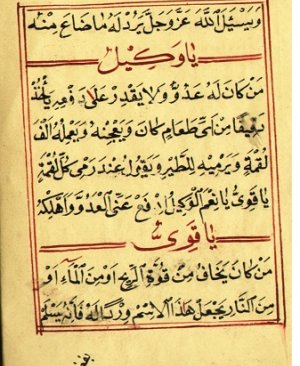 وَيَسْئَلُ اللّٰهَ عَزَّ وَجَلَّ يَرُدُّ لَهُ مَا ضَاعَ مِنْهُ
يَا وَكِيلُ
مَنْ كَانَ لَهُ عَدُوٌّ وَلَا يَقْدِرُ عَلَى دَفْعِهِ يَأْخُذُ
دَقِيقًا مِنْ اَيِّ طَعَامٍ كَانَ وَيَعْجِنُهُ وَيَعْمِلُهُ اَلْفَ
لُقْمَةٍ وَيَرْمِيهِ لِلطَّيْرِ وَيَقُولُ عِنْدَ رَمْيِ كُلِّ لُقْمَةٍ
يَا قَوِىُّ يَا نِعْمَ الْوَكِيلُ اِدْفَعْ عَنِّى الْعَدُوَّ وَاَهْلِكْهُ
يَا قَوِىُّ
مَنْ كَانَ يَخَافُ مِنْ قُوَّةِ الرِّيحِ اَوْ مِنَ الْمَآءِ اَوْ
مِنَ النَّارِ يَجْعَلُ هٰذَا الْاِسْمَ وِرْدًا لَهُ فَاِنَّهُ يَسْلَمُ